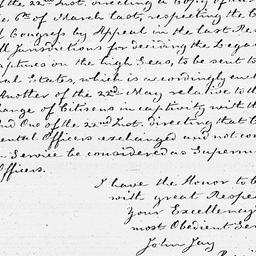 of the 22d Inst. directing a Copy of an
the 6th of March last, respecting the C
of Congress by Appeal in the last Re
all Jurisdictions for deciding the Legal
Captures on the high Seas, to be sent to
ral States, which is accordingly encl
Another of the 22d May relative to th
change of Citizens in captivity with th
And One of the 22nd Inst. directing that C
ental Officers exchanged and not con
in Service be considered as Supernum
Officers.
I have the Honor to b
with great Respec
Your Excellency's
most Obedient Serv
John Jay